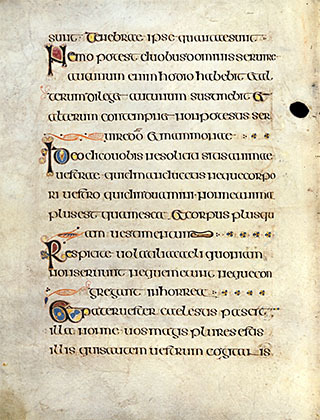 sunt Tenebrae ipse quantaesunt
Nemo potest duobus dominis seruire
autunum enim hodio habebit &al
terum dileget autunum sustinebit &
alterum contempnet nonpotestis ser
uire do & mammonae
Ideo dico uobis nesollicitisitis animae
uestrae quidmanducetis nequecorpo
ri uestro quidinduamini nonneanima
plusest quamesca &corpus plusqu
am uestimentum
Respicite uolatiliacaeli quoniam
nonserunt nequemetunt nequecon
gregant inhorrea
& pateruester caelestis pascit
illa nonne uosmagis pluresestis
illis quisautem uestrum